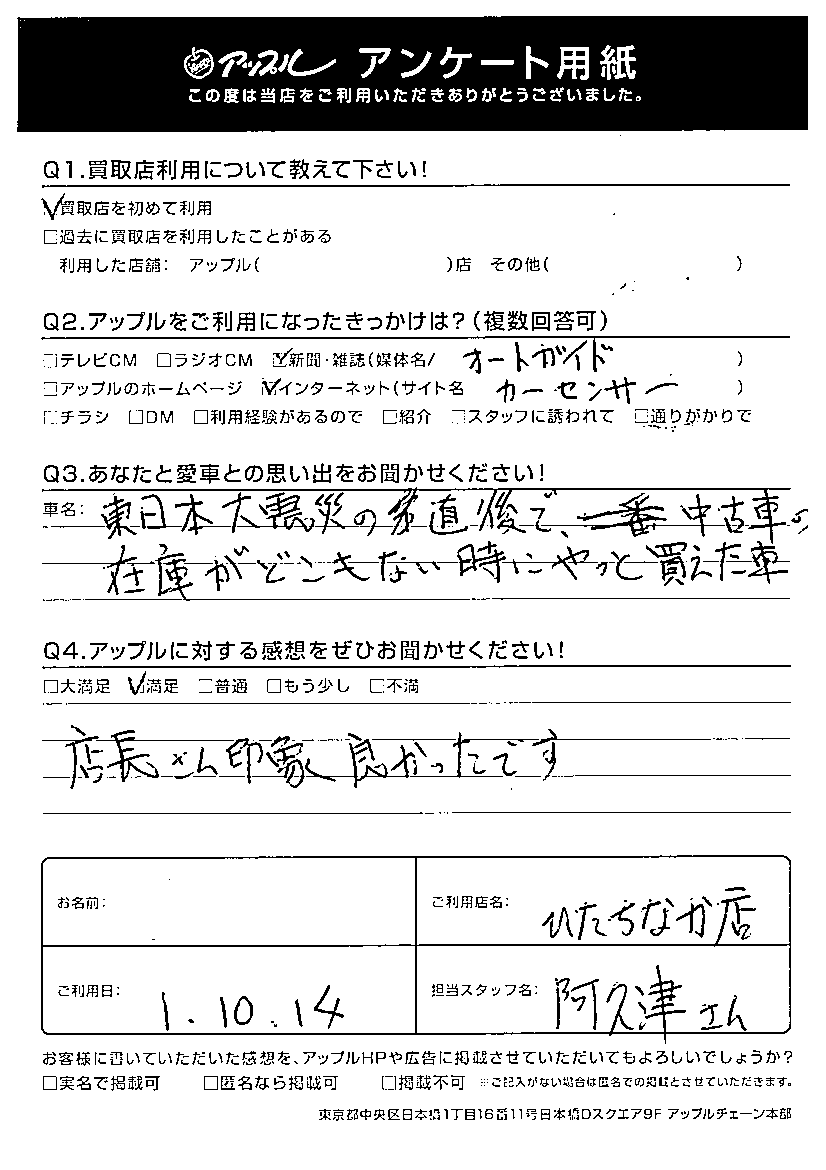 アップル アンケート用紙
この度は当店をご利用いただきありがとうございました。
Q1.買取店利用について教えて下さい!
☑買取店を初めて利用
□過去に買取店を利用したことがある
利用した店舗: アップル( )店 その他( )
Q2.アップルをご利用になったきっかけは?(複数回答可)
□テレビCM □ラジオCM ☑新聞・雑誌(媒体名/ オートガイド )
□アップルのホームページ ☑インターネット(サイト名 カーセンサー )
□チラシ □DM □利用経験があるので □紹介 □スタッフに誘われて □通りがかりで
Q3.あなたと愛車との思い出をお聞かせください!
車名: 東日本大震災の直後で、一番中古車の
在庫がどこもない時にやっと買えた車
Q4.アップルに対する感想をぜひお聞かせください!
□大満足 ☑満足 □普通 □もう少し □不満
店長さん印象良かったです
お名前:
ご利用店名: ひたちなか店
ご利用日: 1.10.14
担当スタッフ名: 阿久津さん
お客様に書いていただいた感想を、アップルHPや広告に掲載させていただいてもよろしいでしょうか?
□実名で掲載可 □匿名なら掲載可 □掲載不可 ※ご記入がない場合は匿名での掲載とさせていただきます。
東京都中央区日本橋1丁目16番11号日本橋Dスクエア9F アップルチェーン本部